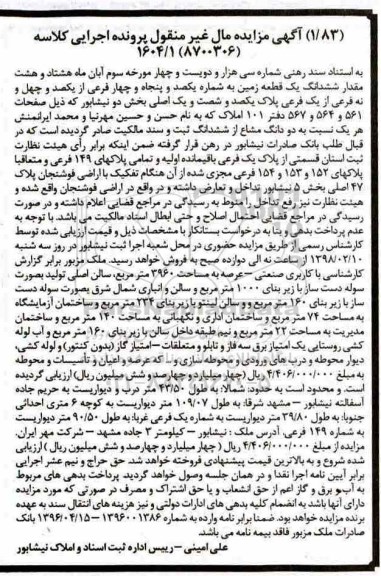 (۱/۸۳) آگهی مزایده مال غیر منقول پرونده اجرایی کلاسه
(۸۷۰۰۳۰۶) ۱۶۰۴/۱
به استناد سند رهنی شماره سی هزار و دویست و چهار مورخه سوم آبان ماه هشتاد و هشت
مقدار ششدانگ یک قطعه زمین به شماره یکصد و پنجاه و چهار فرعی از یکصد و چهل و
نه فرعی از یک فرعی پلاک یکصد و شصت و یک اصلی بخش دو نیشابور که ذیل صفحات
۵۶۱ و ۵۶۴ و ۵۶۷ دفتر ۱۰۱ املاک که به نام حسن و حسین مهرنیا و محمد ایرانمنش
هر یک نسبت به دو دانگ مشاع از ششدانگ ثبت و سند مالکیت صادر گردیده است که در
قبال طلب بانک صادرات نیشابور در رهن قرار گرفته ضمن اینکه برابر رأی هیئت نظارت
ثبت استان قسمتی از پلاک یک فرعی باقیمانده اولیه و تمامی پلاکهای ۱۴۹ فرعی و متعاقبا
پلاکهای ۱۵۲ و ۱۵۳ و ۱۵۴ فرعی مجزی شده از آن هنگام تفکیک با اراضی فوشنجان پلاک
۴۷ اصلی بخش ۵ نیشابور تداخل و تعارض داشته و در واقع در اراضی فوشنجان واقع شده و
هیئت نظارت نیز رفع تداخل را منوط به رسیدگی در مراجع قضایی اعلام داشته و در صورت
رسیدگی در مراجع قضایی احتمال اصلاح و حتی ابطال اسناد مالکیت می باشد. با توجه به
عدم پرداخت بدهی و بنا به درخواست بستانکار با مشخصات ذیل و قیمت ارزیابی شده توسط
کارشناس رسمی از طریق مزایده حضوری در محل شعبه اجرا ثبت نیشابور در روز سه شنبه
۱۳۹۸/۰۲/۱۰ از ساعت نه الی دوازده صبح به فروش خواهد رسید. ملک مزبور برابر گزارش
کارشناسی با کاربری صنعتی – عرصه به مساحت ۳۹۶۰ متر مربع، سالن اصلی تولید بصورت
سوله دست ساز با زیر بنای ۱۰۰۰ متر مربع و سالن و انباری شمال شرق بصورت سوله دست
ساز با زیر بنای ۱۶۰ متر مربع و و سالن اینتو با زیر بنای ۲۳۴ متر مربع و ساختمان آزمایشگاه
به مساحت ۷۴ متر مربع و ساختمان اداری و نگهبانی به مساحت ۱۴۰ متر مربع و ساختمان
مدیریت به مساحت ۲۲ متر مربع و نیم طبقه داخل سالن با زیر بنای ۱۶۰ متر مربع و آب لوله
کشی روستایی یک امتیاز برق سه فاز و تابلو و متعلقات – امتیاز گاز (بدون کنتور) و لوله کشی،
دیوار محوطه و درب های ورودی و محوطه سازی و... که عرصه و اعیان و تأسیسات و محوطه
به مبلغ ۴/۴۰۶/۰۰۰/۰۰۰ ریال (چهار میلیارد و چهارصد و شش میلیون ریال) ارزیابی گردیده
است. و محدود است به حدود: شمالا: به طول ۴۳/۵۰ متر درب و دیواریست به حریم جاده
آسفالته نیشابور – مشهد شرقا: به طول ۱۰۹/۰۷ متر دیواریست به کوچه ۶ متری احداثی
جنوبا: به طول ۳۹/۸۰ متر دیواریست به شماره یک فرعی غربا: به طول ۹۰/۵۰ متر دیواریست
به شماره ۱۴۹ فرعی. آدرس ملک: نیشابور – کیلومتر ۳ جاده مشهد – شرکت مهر ایران.
مزایده از مبلغ ۴/۴۰۶/۰۰۰/۰۰۰ ریال (چهار میلیارد و چهارصد و شش میلیون ریال) ارزیابی
شده شروع و به بالاترین قیمت پیشنهادی فروخته خواهد شد. حق حراج و نیم عشر اجرایی
برابر آیین نامه اجرا نقدا و در همان جلسه وصول خواهد گردید. پرداخت بدهی های مربوط
به آب و برق و گاز اعم از حق انشعاب و یا حق اشتراک و مصرف در صورتی که مورد مزایده
دارای آنها باشد به انضمام کلیه بدهی های ادارات دولتی و نیز هزینه های انتقال سند به عهده
برنده مزایده خواهد بود. ضمنا برابر نامه وارده به شماره ۱۳۹۶۰۰۱۳۸۶ – ۱۳۹۶/۰۴/۱۵ بانک
صادرات ملک مزبور فاقد بیمه نامه می باشد.
علی امینی – رییس اداره ثبت اسناد و املاک نیشابور